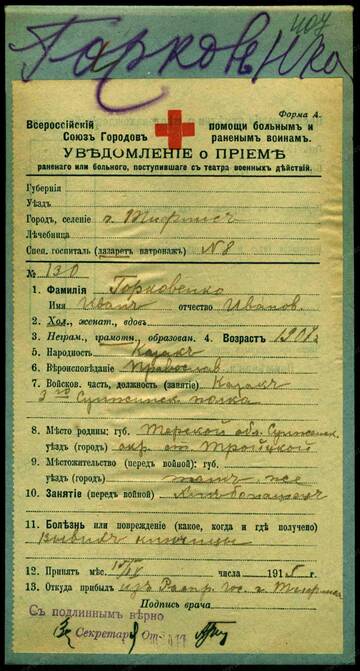 407
Гарковенко
Форма А.
Всероссійскій помощи больнымъ и
Союзъ Городовъ раненымъ воинамъ.
УВѢДОМЛЕНІЕ о ПРІЕМѢ
раненаго или больного, поступившаго съ театра военныхъ дѣйствій.
Губернія
Уѣздъ
Городъ, селеніе г. Тифлисъ
Лѣчебница
Спец. госпиталь (лазаретъ патронажъ) №8
№ 130
1. Фамилія Горковенко
Имя Иванъ отчество Иванов.
2. Хол., женат., вдовъ.
3. Неграм., грамотн., образован. 4. Возрастъ 190 г.
5. Народность Казакъ
6. Вѣроисповѣданіе Православ.
7. Войсков. часть, должность (занятіе) Казакъ
3 го Сунженск. полка
8. Мѣсто родины: губ. Терской обл. Сунженск.
уѣздъ (городъ) окр. ст. Троицкой
9. Мѣстожительство (передъ войной): губ.
уѣздъ (городъ) тамъ же
10. Занятіе (передъ войной) Хлѣбопашецъ
11. Болѣзнь или поврежденіе (какое, когда и гдѣ получено)
Вывихъ ключицы
12. Принятъ мѣс. числа 1915 г.
13. Откуда прибылъ изъ Распр. Гос. г. Тифлиса
Подпись врача
Съ подлиннымъ вѣрно
За Секретаря От